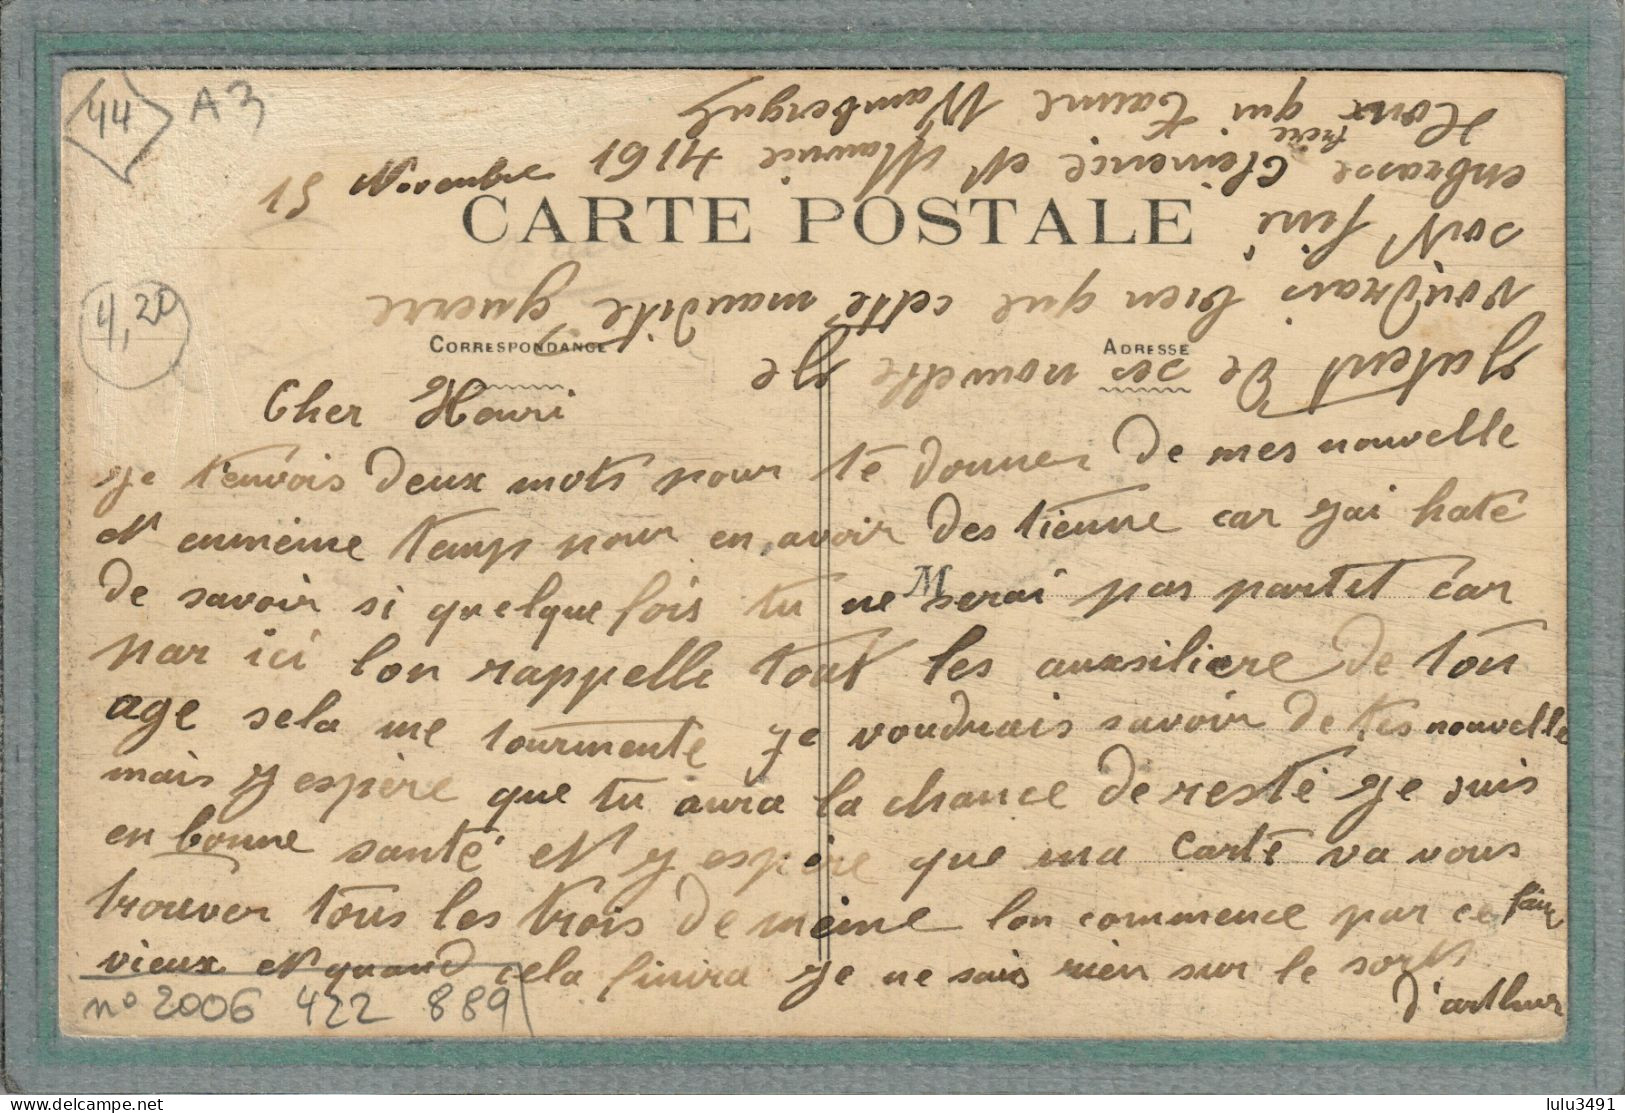 44
A3
15 Novembre 1914
CARTE POSTALE
4,20
CORRESPONDANCE
ADRESSE
Cher Henri
je t'envois deux mots pour te donner de mes nouvelle
et enmeme temp pour en avoir des tienne car jai hate
de savoir si quelque fois tu ne serai pas partet car
M
par ici lon rappelle tout les auxsiliere de ton
age sela me tourmente je voudrais savoir de tes nouvelle
mais j espère que tu aura la chance de resté je suis
en bonne santé et j espère que ma carte va vous
trouver tous les trois de meme lon commence par ce faire
vieux et quand cela finira je ne sais rien sur le sort
d'arthur
Jatent de des nouvelle je
voudrais bien que cette maudite guerre
soit fini
enbrasse Clemence et Maurice
frère
qui taime Wambergue
n° 2006 422 889
Delcampe.net
lulu3491